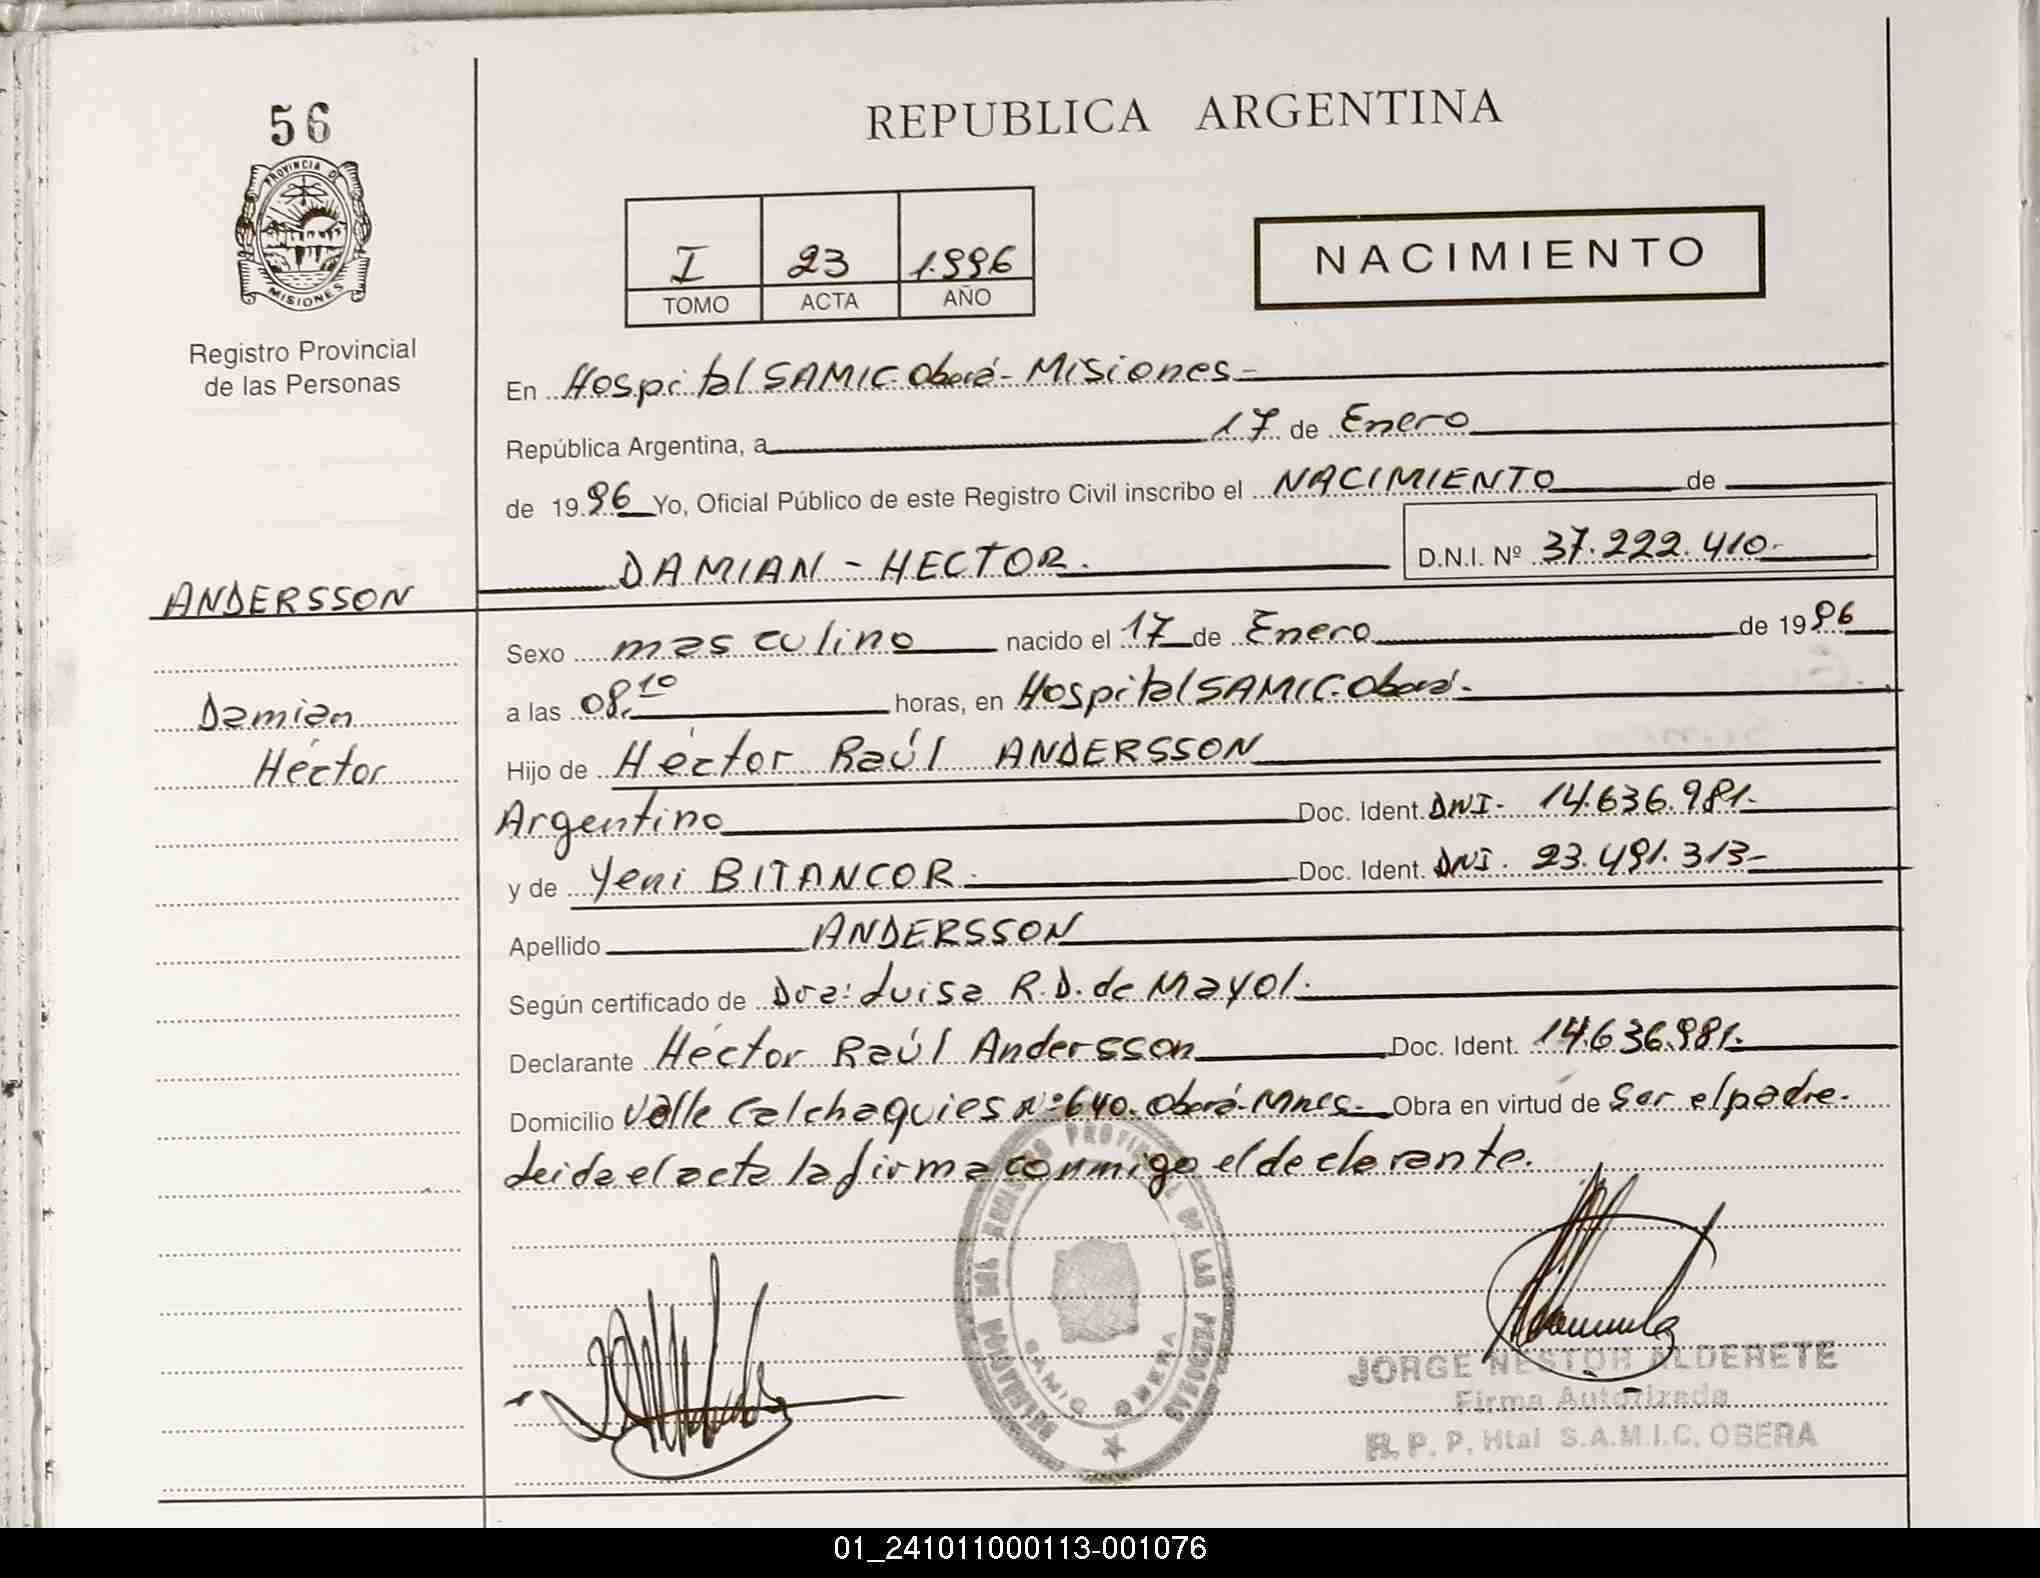 56
PROVINCIA DE
MISIONES
Registro Provincial
de las Personas
REPUBLICA ARGENTINA
I 23 1.996
TOMO ACTA AÑO
NACIMIENTO
En Hospital SAMIC-Oberá-Misiones-
República Argentina, a 17 de Enero
de 1996 Yo, Oficial Público de este Registro Civil inscribo el NACIMIENTO de
DAMIAN - HECTOR. D.N.I. Nº 37.222.410-
ANDERSSON
Damian
Héctor
Sexo masculino nacido el 17 de Enero de 1996
a las 08.10 horas, en Hospital SAMIC-Oberá-
Hijo de Héctor Raúl ANDERSSON
Argentino Doc. Ident. DNI- 14.636.981-
y de Yeni BITANCOR- Doc. Ident. DNI. 23.491.313-
Apellido ANDERSSON
Según certificado de Dra: Luisa R.D. de Mayol.
Declarante Héctor Raúl Andersson Doc. Ident. 14.636.981.
Domicilio Valle Calchaquies Nº 640. Oberá-Mnes- Obra en virtud de Ser el padre.
Leida el acta la firma conmigo el declarante.
REGISTRO PROVINCIAL DE LAS PERSONAS
SAMIC OBERA
JORGE NESTOR ALDERETE
Firma Autorizada
R. P. P. Htal S.A.M.I.C. OBERA
01_241011000113-001076